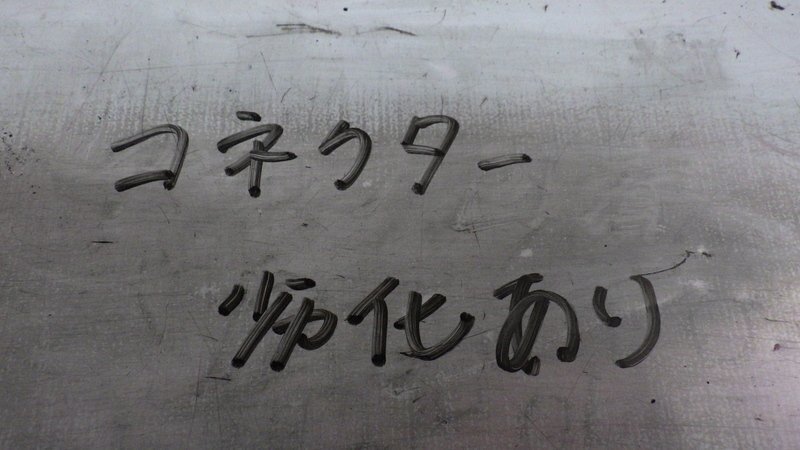 コネクター
劣化あり